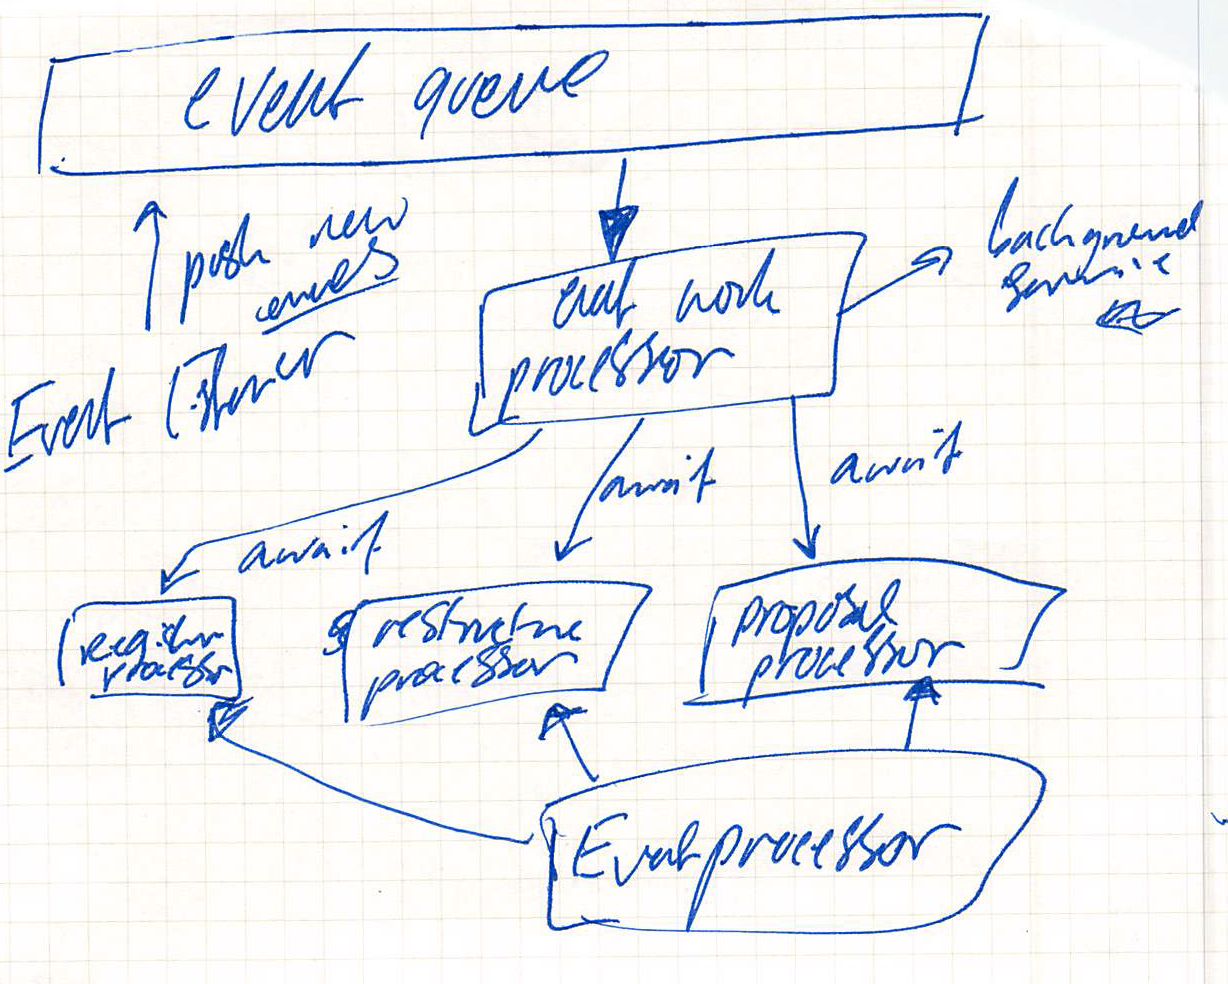 event queue
push new
events
background
service
event work
processor
Event listener
await
await
await
register
processor
restructure
processor
proposal
processor
Event processor